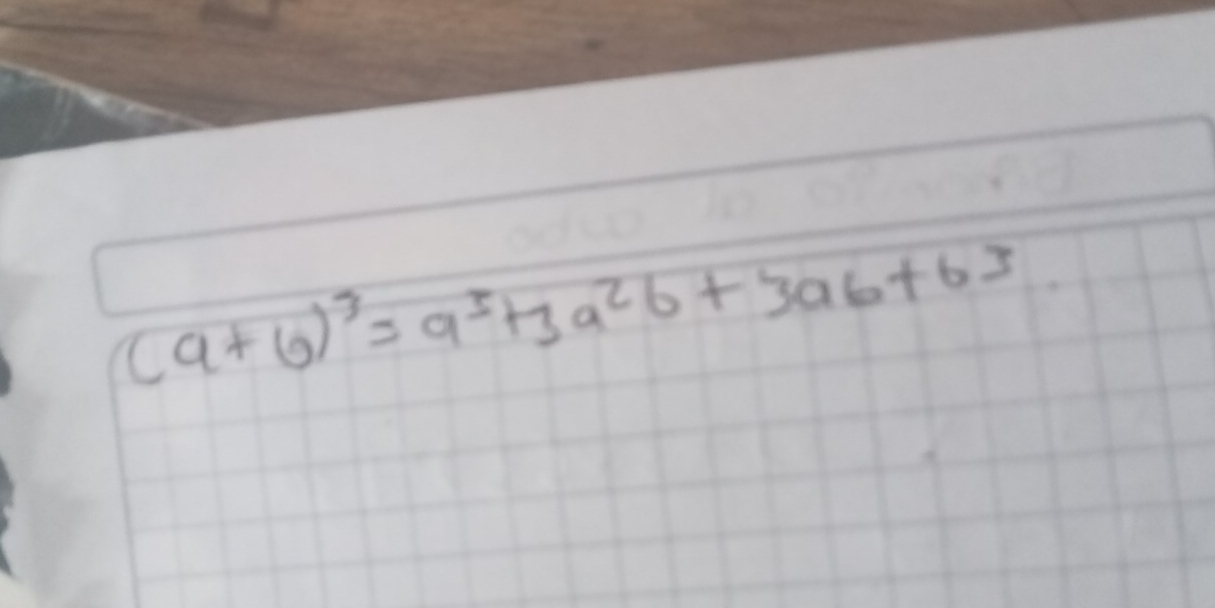 (a+b)³=a³+3a²b+3ab+b³